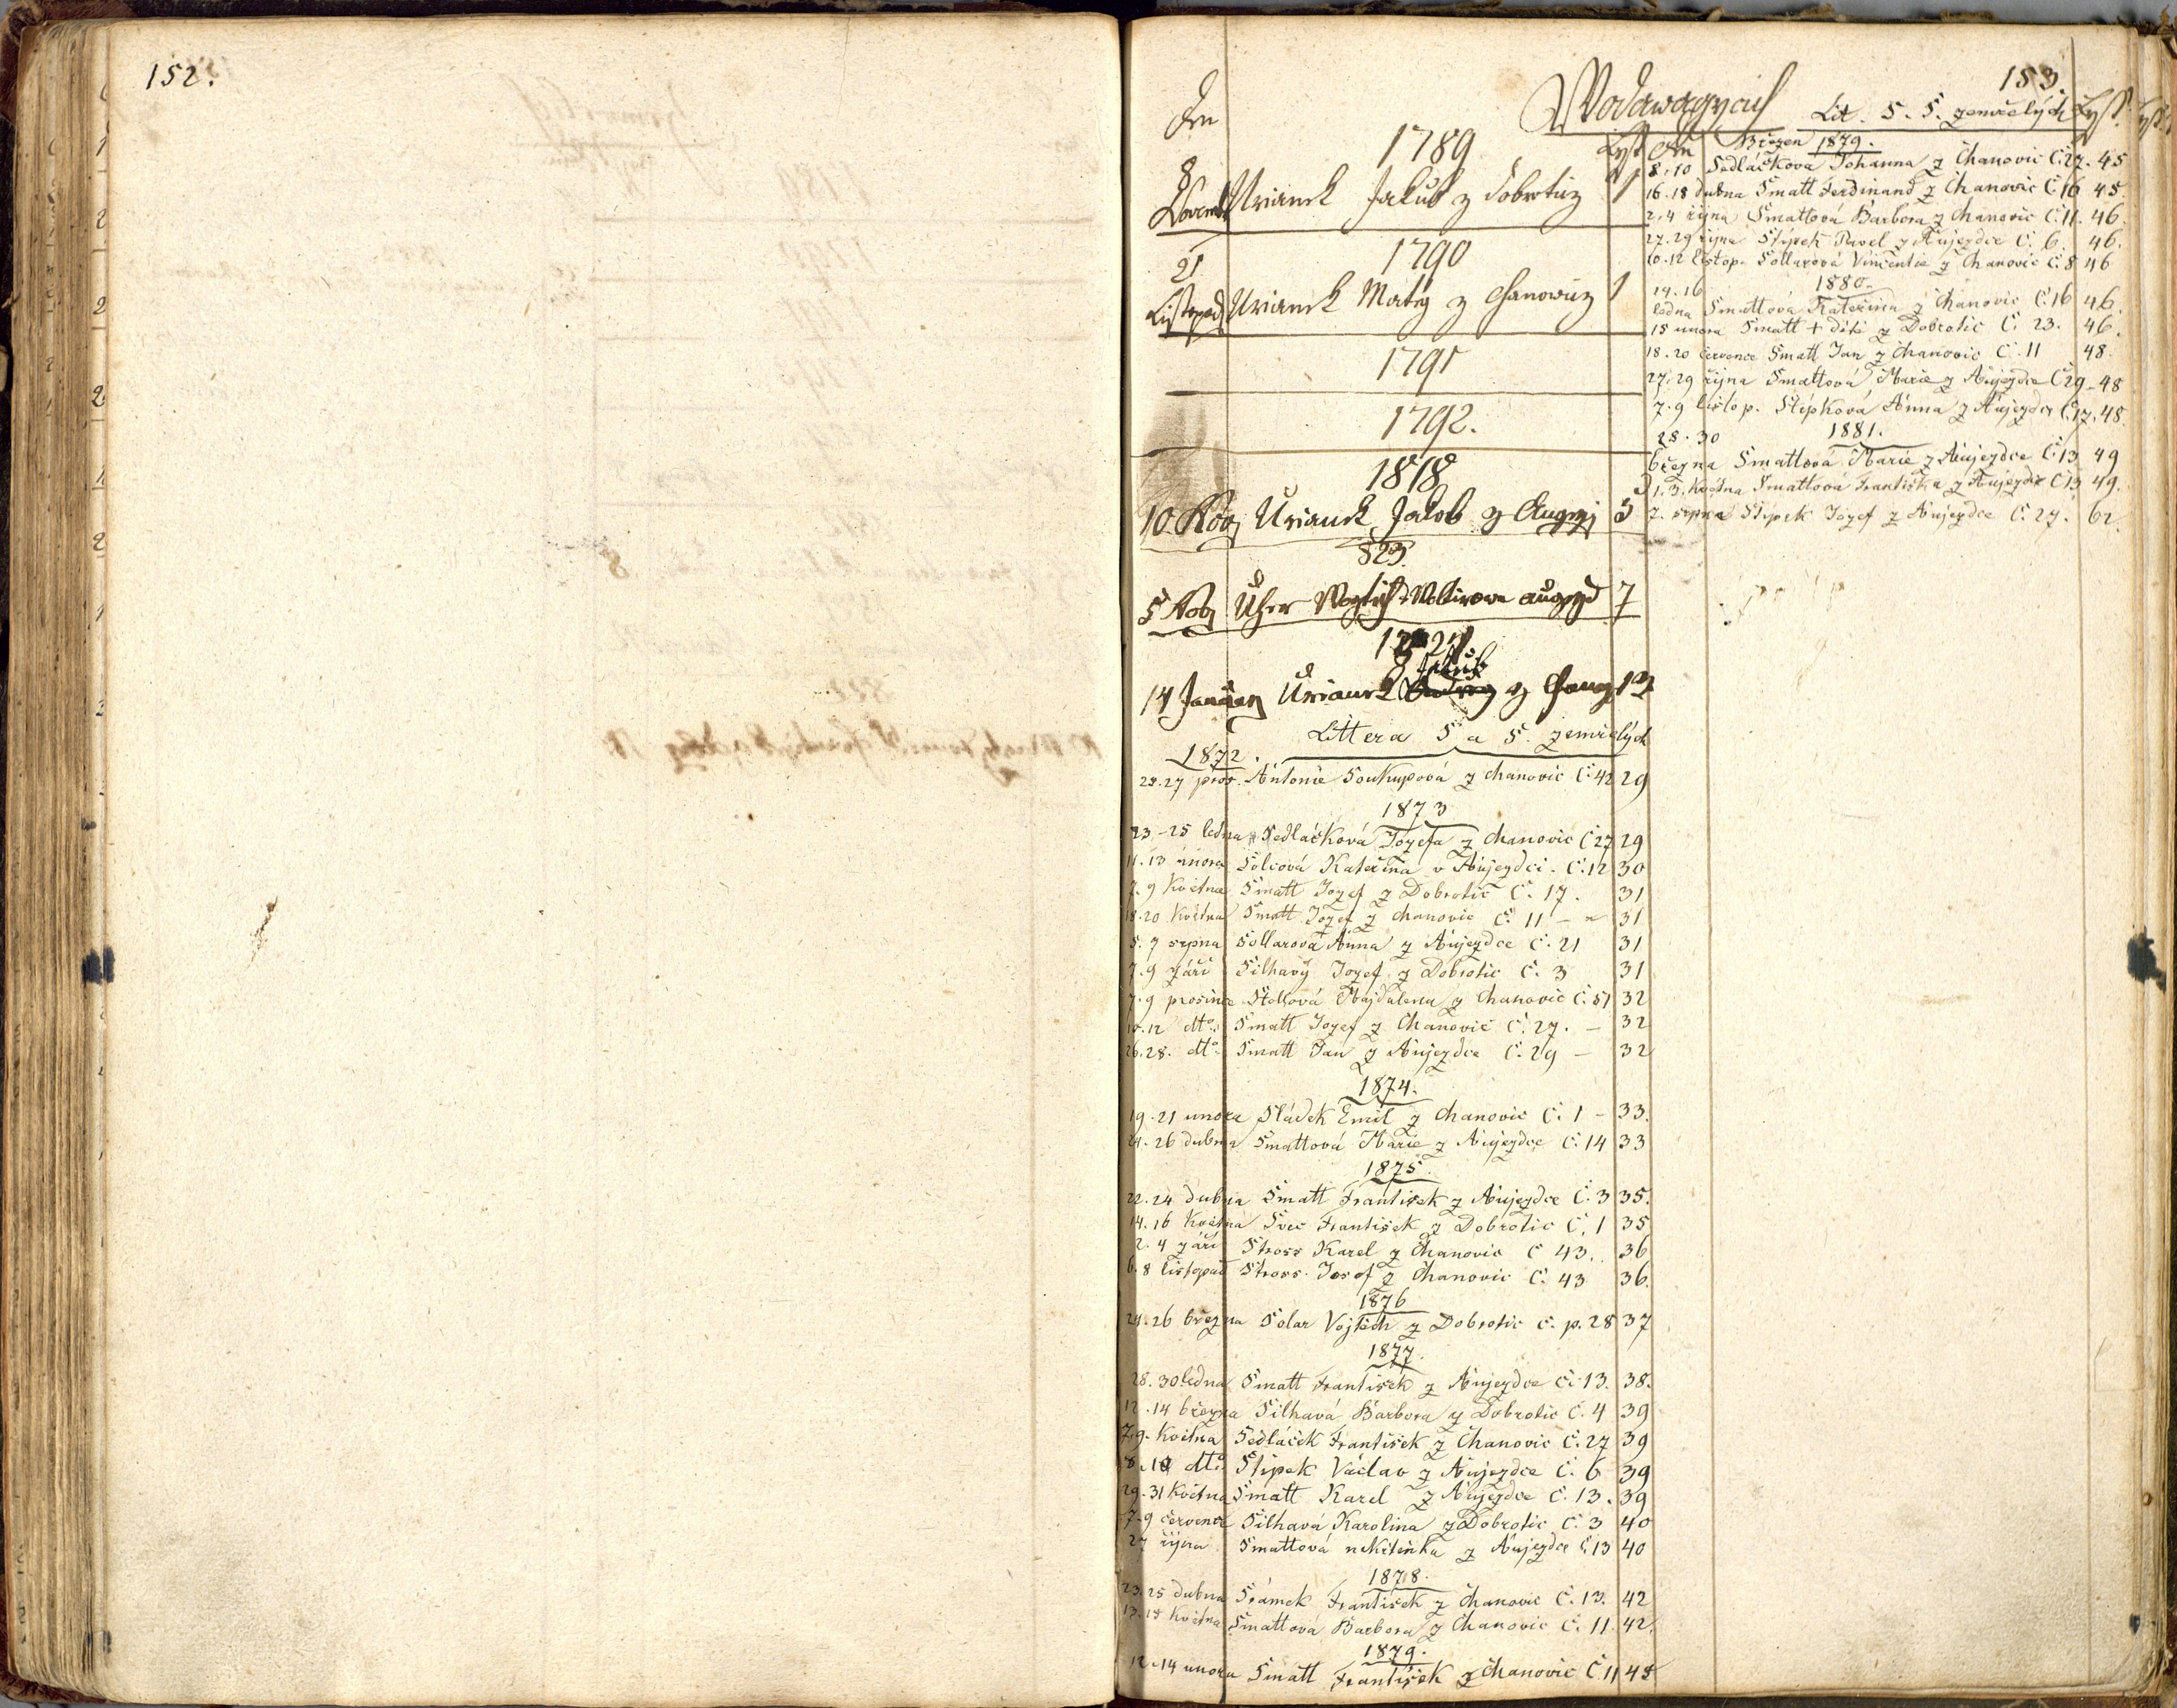 152.
153.
Den
Lit. S. Š. zemřelých Lyst
1789
Lyst Den
8
Urianek Jakub z Dobroticz 1
1790
21
Listopad Urianek Matěg z Chanowicz 1
1791
1792.
1818
10. Urianek Jakob z 3
823.
5 Uher 7
14 Urianek Jakub z 13
Littera S a Š. zemřelých
1872.
25.27 pros. Antonie Soukupová z Chanovic Č 42 29
1873
23-25 ledna Sedláčková Jozefa z Chanovic Č 27 29
11.13 února Šolcová Kateřina v Aujezdci. Č.12 30
7.9 Května Šmatt Jozef z Dobrotic Č. 17. 31
18.20 Května Šmatt Jozef z Chanovic Č. 11 - 31
5.7 srpna Sollarová Anna z Aujezdce Č. 21 31
7.9 září Šilhavý Jozef z Dobrotic Č. 3 31
7.9 prosince Majdalena z Chanovic Č. 51 32
10.12 dtto. Šmatt Jozef z Chanovic Č. 27. - 32
26.28. dtto. Šmatt Jan z Aujezdce Č. 29 - 32
1874.
19.21 unora Sládek Emil z Chanovic Č. 1 - 33.
24.26 dubna Šmattová Marie z Aujezdce Č. 14 33
1875.
22.24 dubna Šmatt František z Aujezdce Č. 3 35.
14.16 Května Švec František z Dobrotic Č. 1 35
2.4 září Stross Karel z Chanovic Č 43. 36
6.8 listopad Stross Josef z Chanovic Č. 43 36.
1876
24.26 března Solar Vojtěch z Dobrotic č. p. 28 37
1877.
28.30 ledna Šmatt František z Aujezdce Č. 13. 38.
12.14 března Šilhavá Barbora z Dobrotic Č. 4 39
7.9. Května Sedláček František z Chanovic Č. 27 39
8.10 dtto. Štípek Václav z Aujezdce Č. 6 39
29.31 Května Šmatt Karel z Aujezdce Č. 13. 39
7.9 července Šilhavá Karolina z Dobrotic Č. 3 40
27 října Šmattová nekřtěnka z Aujezdce Č 13 40
1878.
23.25 dubna Šrámek František z Chanovic Č. 13. 42
13.15 Května Šmattová Barbora z Chanovic Č. 11 42.
1879.
12.14 unora Šmatt František z Chanovic Č. 11 45
Březen 1879.
8.10 Sedláčkova Johanna z Chanovic Č. 27. 45
16.18 dubna Šmatt Ferdinand z Chanovic Č 16 45
2.4 října Šmattová Barbora z Chanovic Č. 11. 46.
27.29 října Štípek Pavel z Aujezdce Č. 6. 46.
10.12 listop. Sollarová Vincentie z Chanovic Č. 8 46
1880.
14.16
ledna Šmattova Kateřina z Chanovic Č. 16 46.
15 unora Šmatt + dítě z Dobrotic Č. 23. 46.
18.20 července Šmatt Jan z Chanovic Č. 11 48.
27.29 října Šmattová Marie z Aujezdce Č 29 - 48
7.9 listop. Štípková Anna z Aujezdce Č. 17. 48
1881.
28.30
března Šmattová Marie z Aujezdce Č. 13 49
1.3. Května Šmattova Františka z Aujezdce Č 13 49.
7. srpna Štípek Jozef z Aujezdce Č. 27. 62.